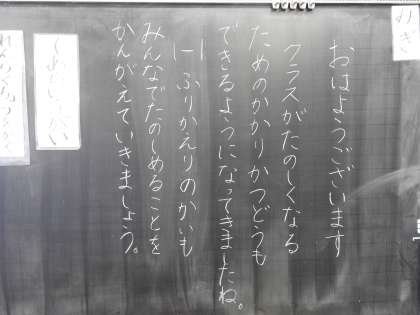 おはようございます
クラスがたのしくなる
ためのかかりかつどうも
できるようになってきましたね。
ふりかえりのかいも
みんなでたのしめることを
かんがえていきましょう。